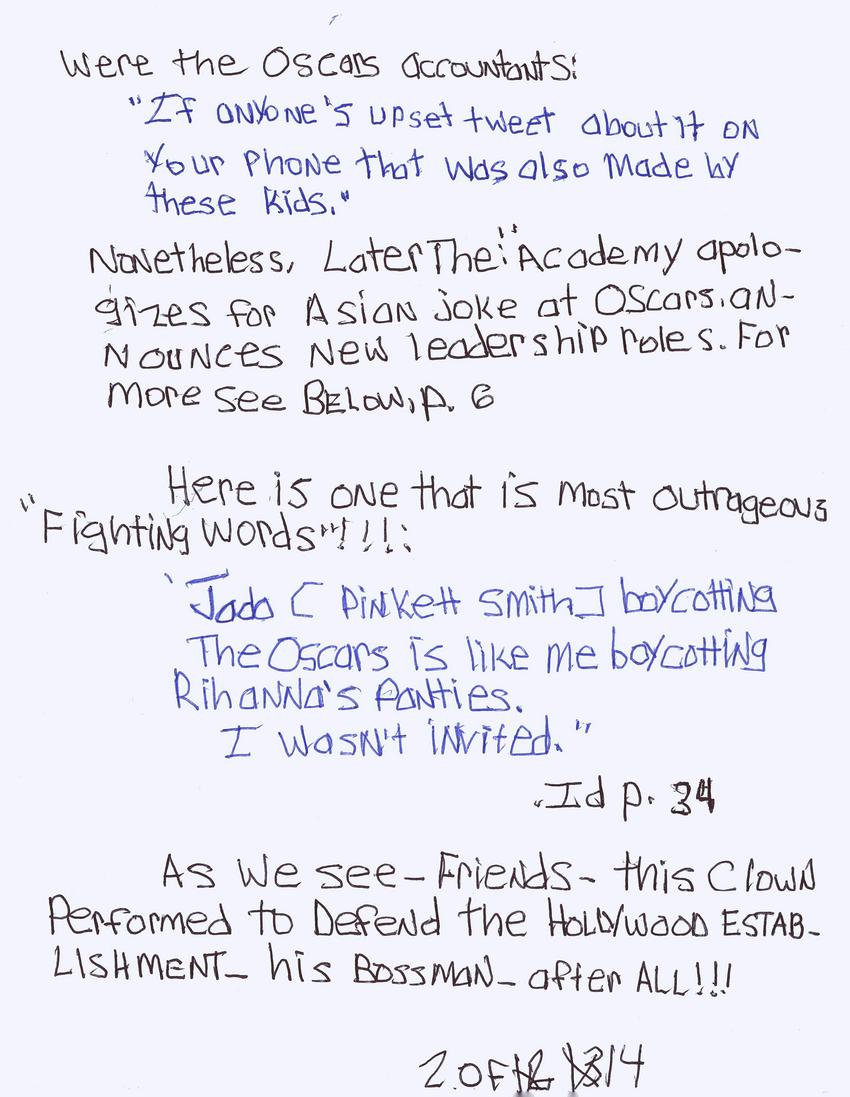 Were the Oscars accountants:
"If anyone's upset tweet about it on
your phone that was also made by
these kids."
Nonetheless, Later The: "Academy apolo-
gizes for Asian joke at Oscars, an-
nounces new leadership roles. For
more see BELOW, p. 6
Here is one that is most outrageous
"Fighting words"!!!:
"Jada [Pinkett Smith] boycotting
The Oscars is like me boycotting
Rihanna's Panties.
I wasn't invited."
.Id p. 34
As we see - Friends - this Clown
Performed to Defend the HOLLYWOOD ESTAB-
LISHMENT - his BOSSMAN - after ALL!!!
2 OF 14